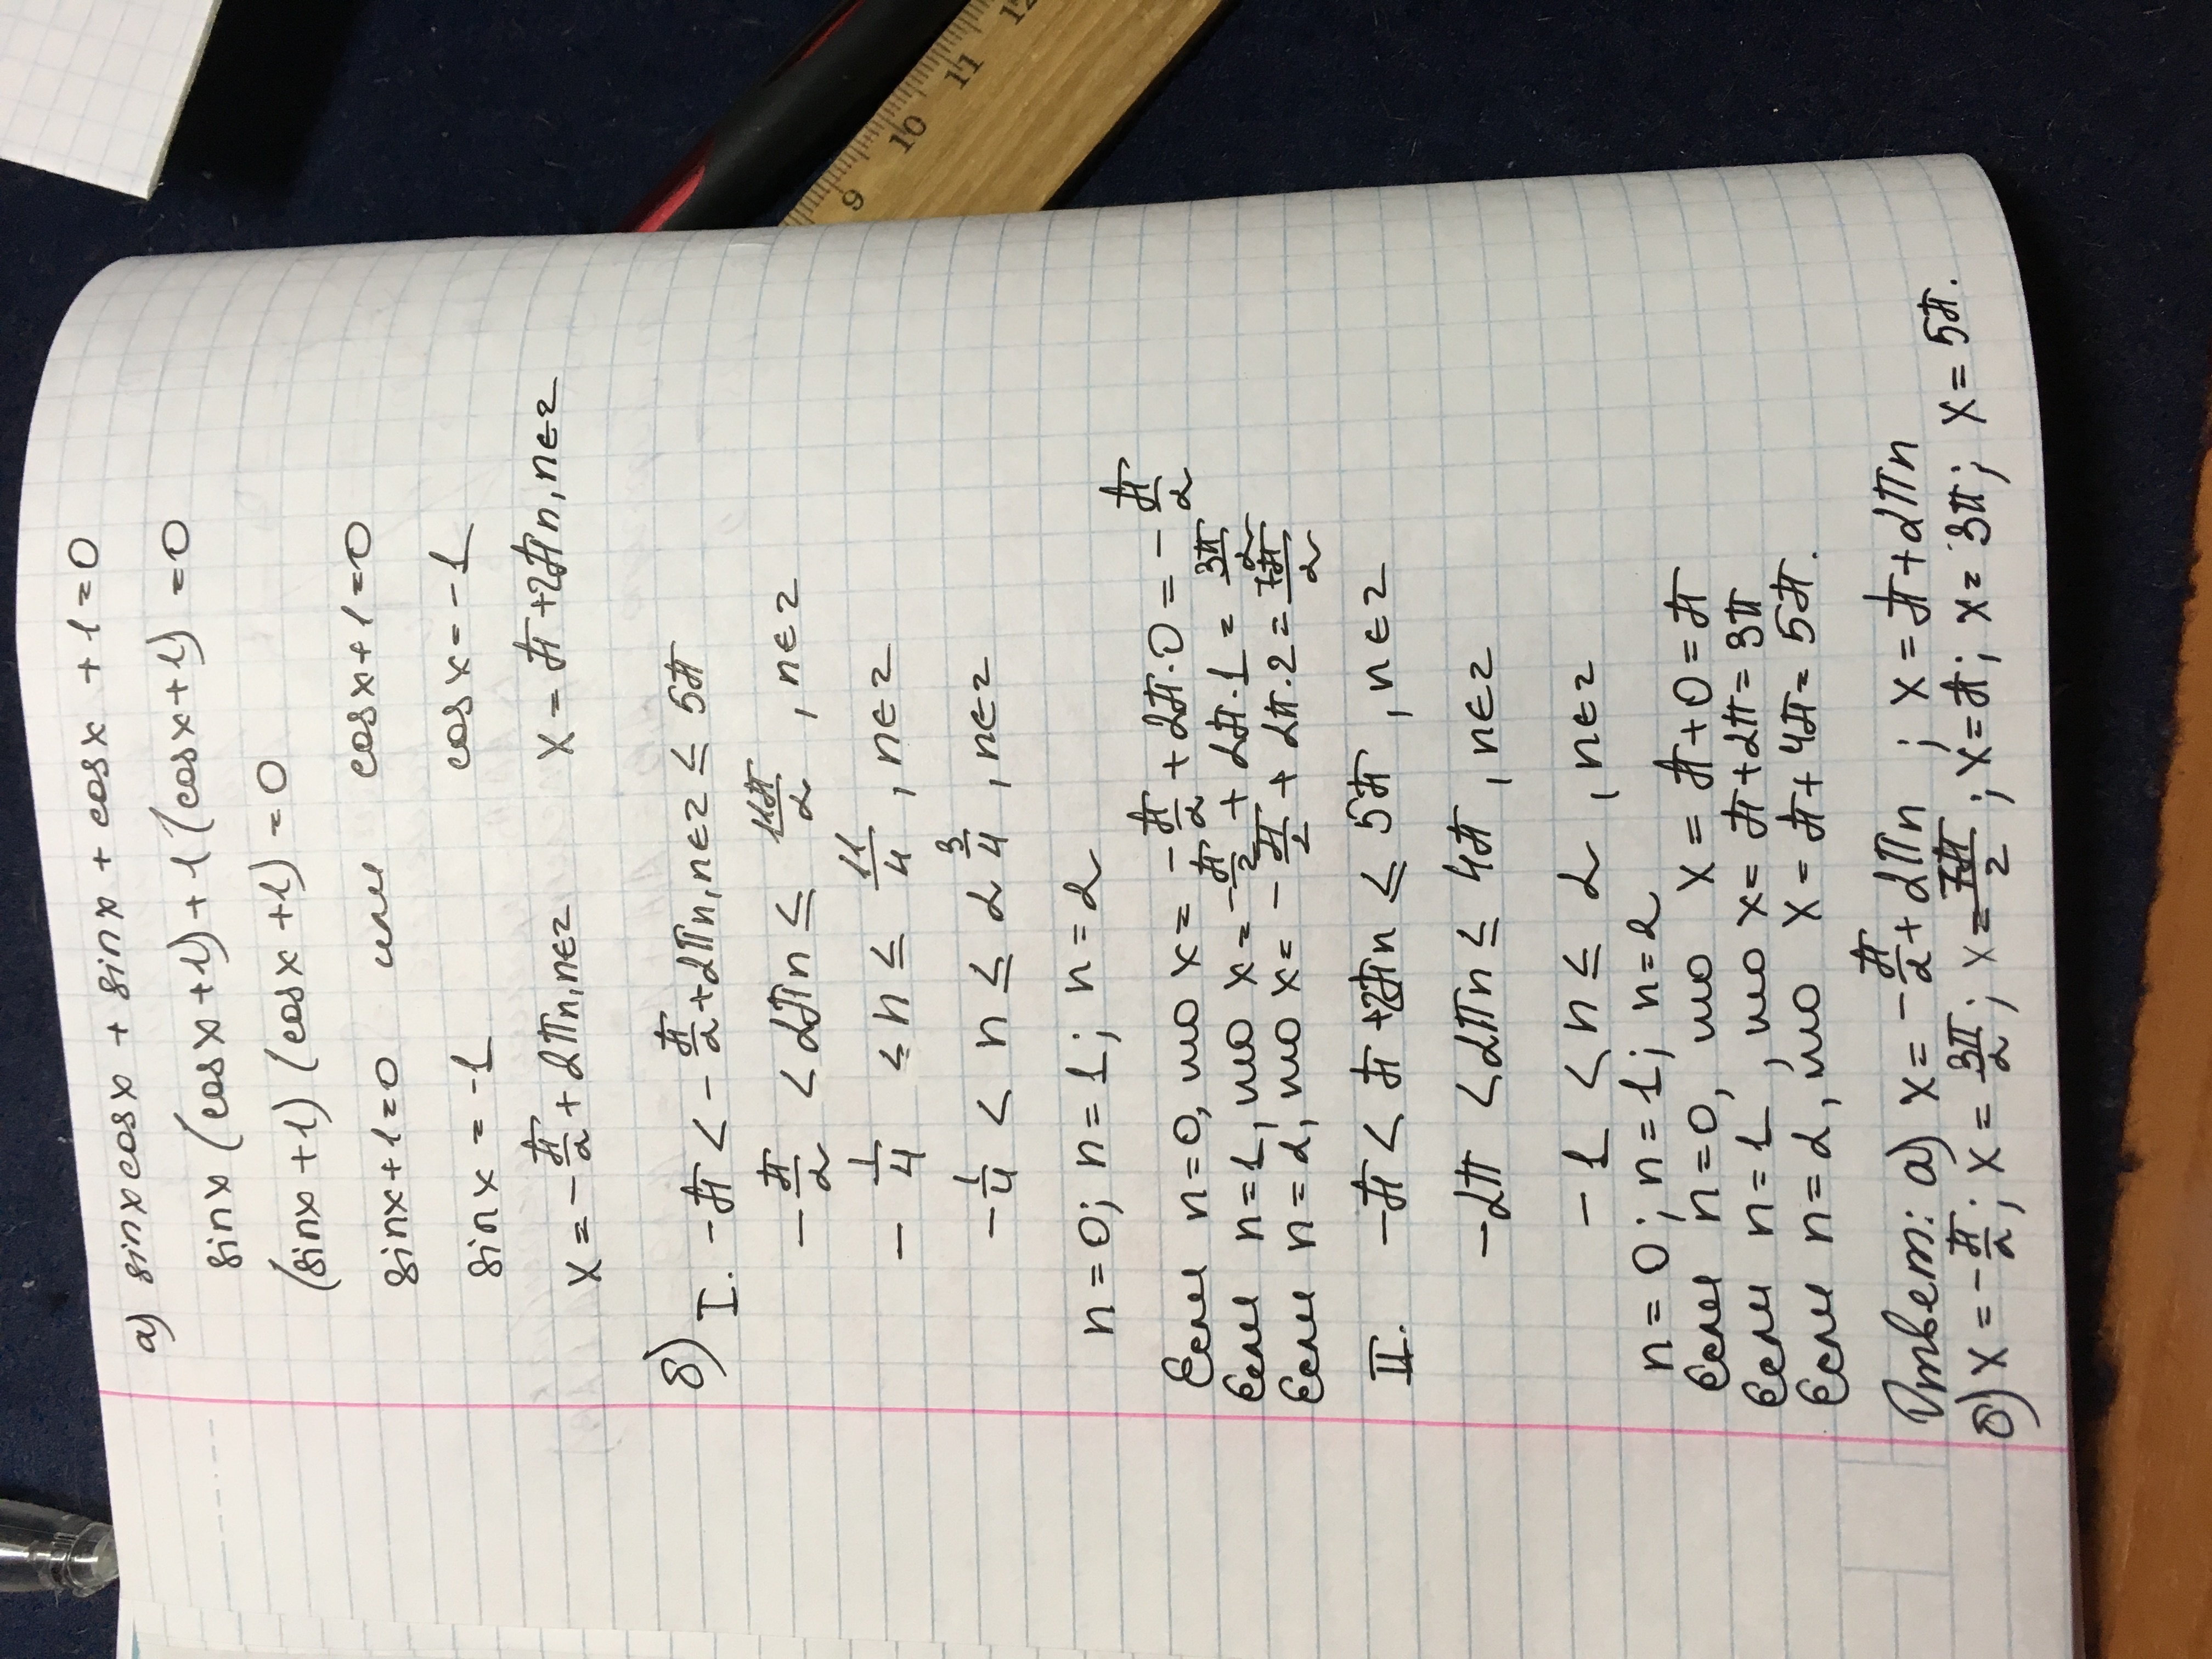 а) sinxcosx + sinx + cosx + 1 = 0
sinx (cosx+1) + 1 (cosx+1) = 0
(sinx+1) (cosx+1) = 0
sinx+1=0 или cosx+1=0
sinx = -1 cosx = -1
x = -π/2 + 2πn, n∈z x = π+2πn, n∈z
б) I. -π < -π/2 + 2πn, n∈z ≤ 5π
-π/2 < 2πn ≤ 11π/2, n∈z
- 1/4 ≤ n ≤ 11/4, n∈z
- 1/4 < n ≤ 2 3/4, n∈z
n=0; n=1; n=2
Если n=0, то x = -π/2 + 2π·0 = -π/2
Если n=1, то x = -π/2 + 2π·1 = 3π/2
Если n=2, то x = -π/2 + 2π·2 = 7π/2
II. -π < π+2πn ≤ 5π, n∈z
-2π < 2πn ≤ 4π, n∈z
-1 < n ≤ 2, n∈z
n=0; n=1; n=2
Если n=0, то x = π+0 = π
Если n=1, то x = π+2π = 3π
Если n=2, то x = π+4π = 5π.
Ответ: а) x = -π/2 + 2πn ; x = π+2πn
б) x = -π/2; x = 3π/2; x = 7π/2; x = π; x = 3π; x = 5π.
9 10 11 12